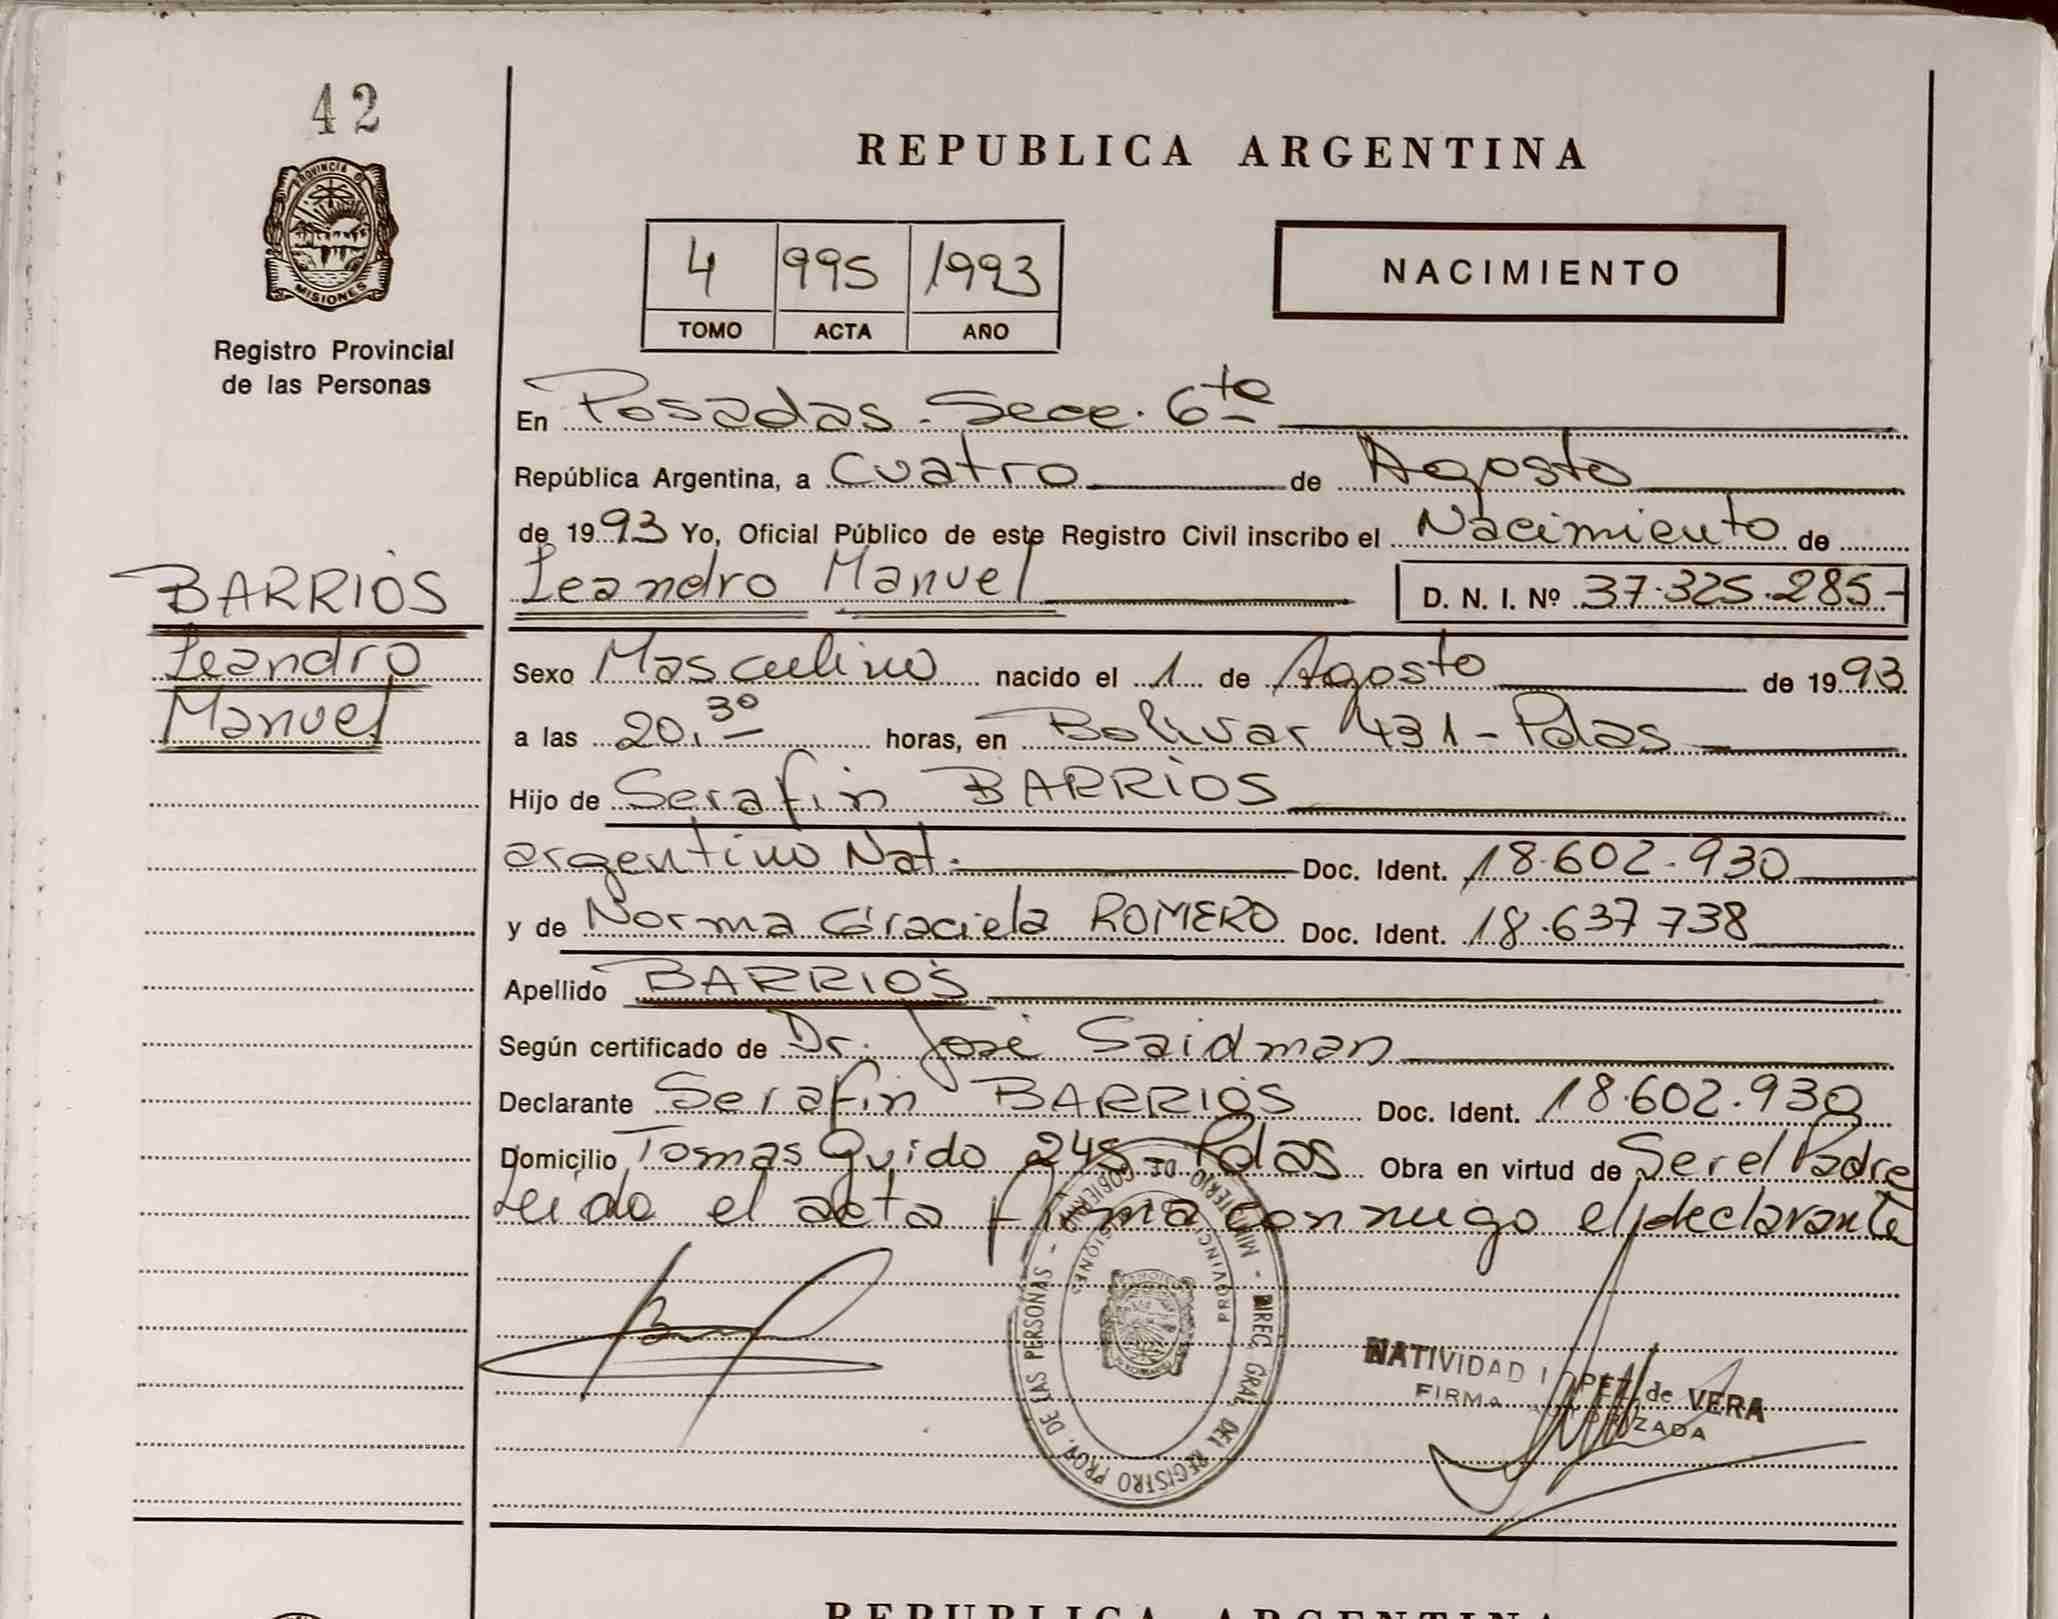 42
PROVINCIA DE
MISIONES
Registro Provincial
de las Personas
REPUBLICA ARGENTINA
4 995 1993
TOMO ACTA AÑO
NACIMIENTO
En Posadas. Secc. 6ta
República Argentina, a Cuatro de Agosto
de 1993 Yo, Oficial Público de este Registro Civil inscribo el Nacimiento de
Leandro Manuel D. N. I. Nº 37.325.285-
BARRIOS
Leandro
Manuel
Sexo Masculino nacido el 1 de Agosto de 1993
a las 20,30 horas, en Bolivar 431 - Pdas
Hijo de Serafin BARRIOS
argentino Nat. Doc. Ident. 18.602.930
y de Norma Graciela ROMERO Doc. Ident. 18.637 738
Apellido BARRIOS
Según certificado de Dr. José Saidman
Declarante Serafin BARRIOS Doc. Ident. 18.602.930
Domicilio Tomas Guido 245 - Pdas Obra en virtud de Ser el Padre
Leido el acta firma conmigo el declarante
MINISTERIO DE GOBIERNO - DIREC. GRAL. DEL REGISTRO PROV. DE LAS PERSONAS -
PROVINCIA MISIONES
NATIVIDAD LOPEZ de VERA
FIRMA AUTORIZADA
REPUBLICA ARGENTINA